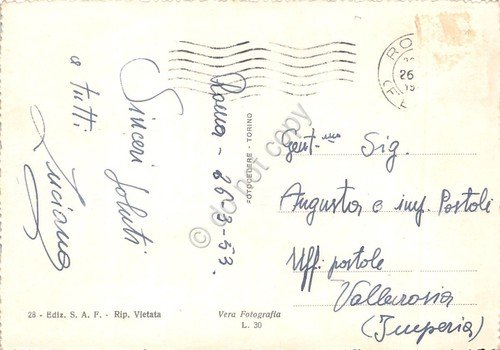 Roma - 26-3-53.
Sinceri saluti
a tutti
Luciana
FOTOCELERE - TORINO
© do not copy
RO
26
Gent.mo Sig.
Augusta e imp. Postali
Uff. postale
Vallecrosia
(Imperia)
28 - Ediz. S. A. F. - Rip. Vietata
Vera Fotografia
L. 30